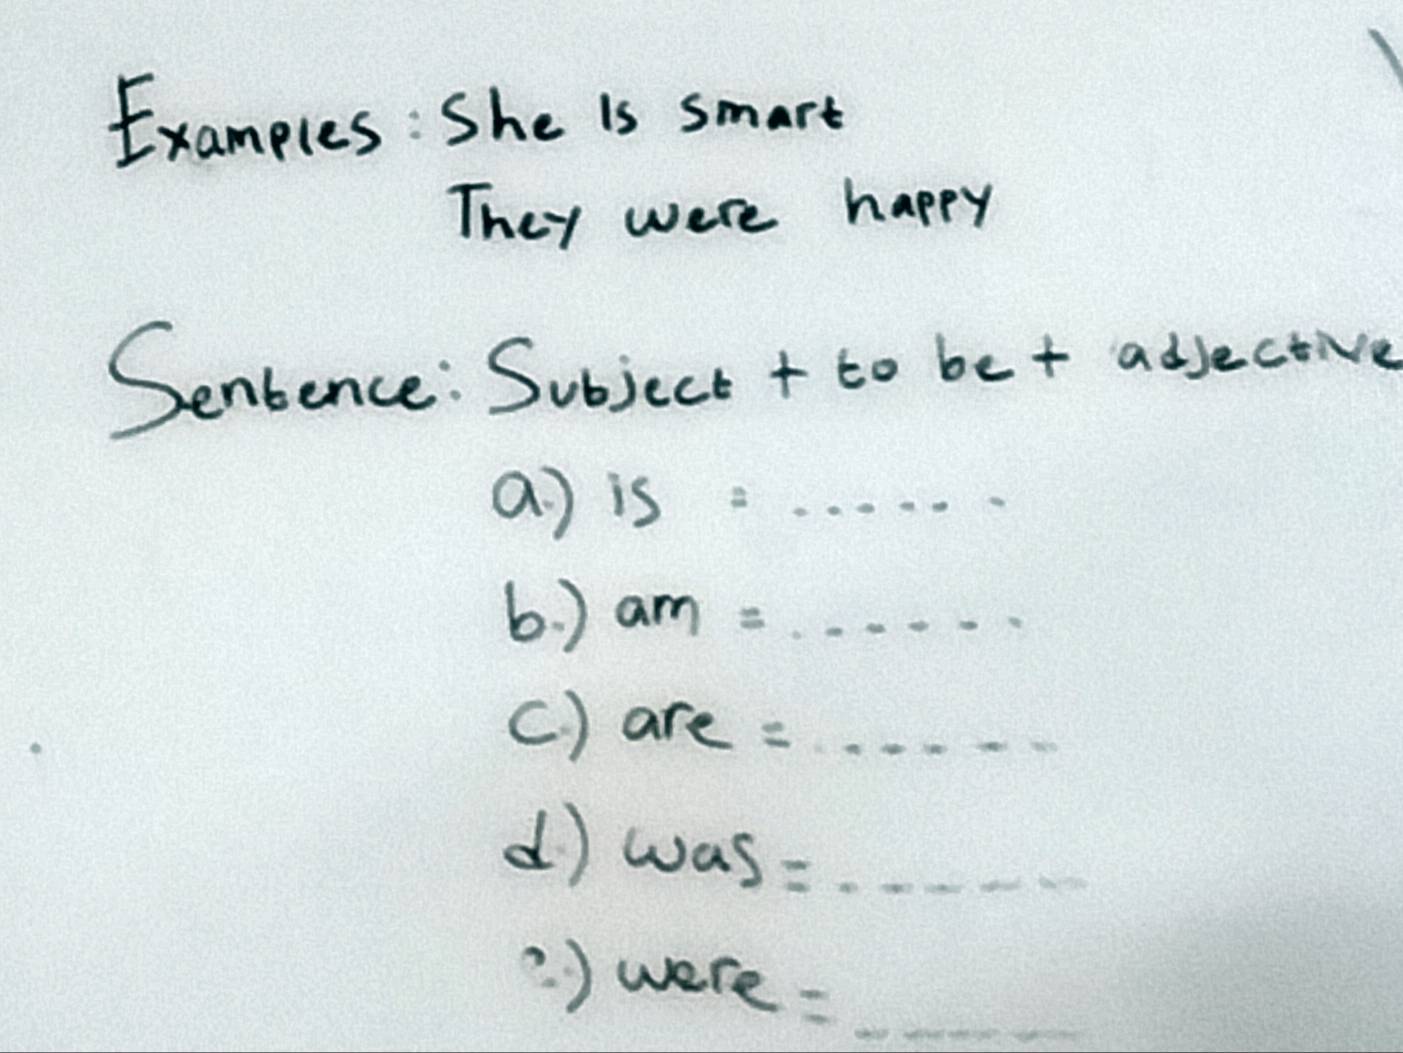 Examples : She Is smart
They were happy
Sentence : Subject + to be + adjective
a.) is = ......
b.) am = ......
c.) are = ......
d.) was = ......
) were = ......